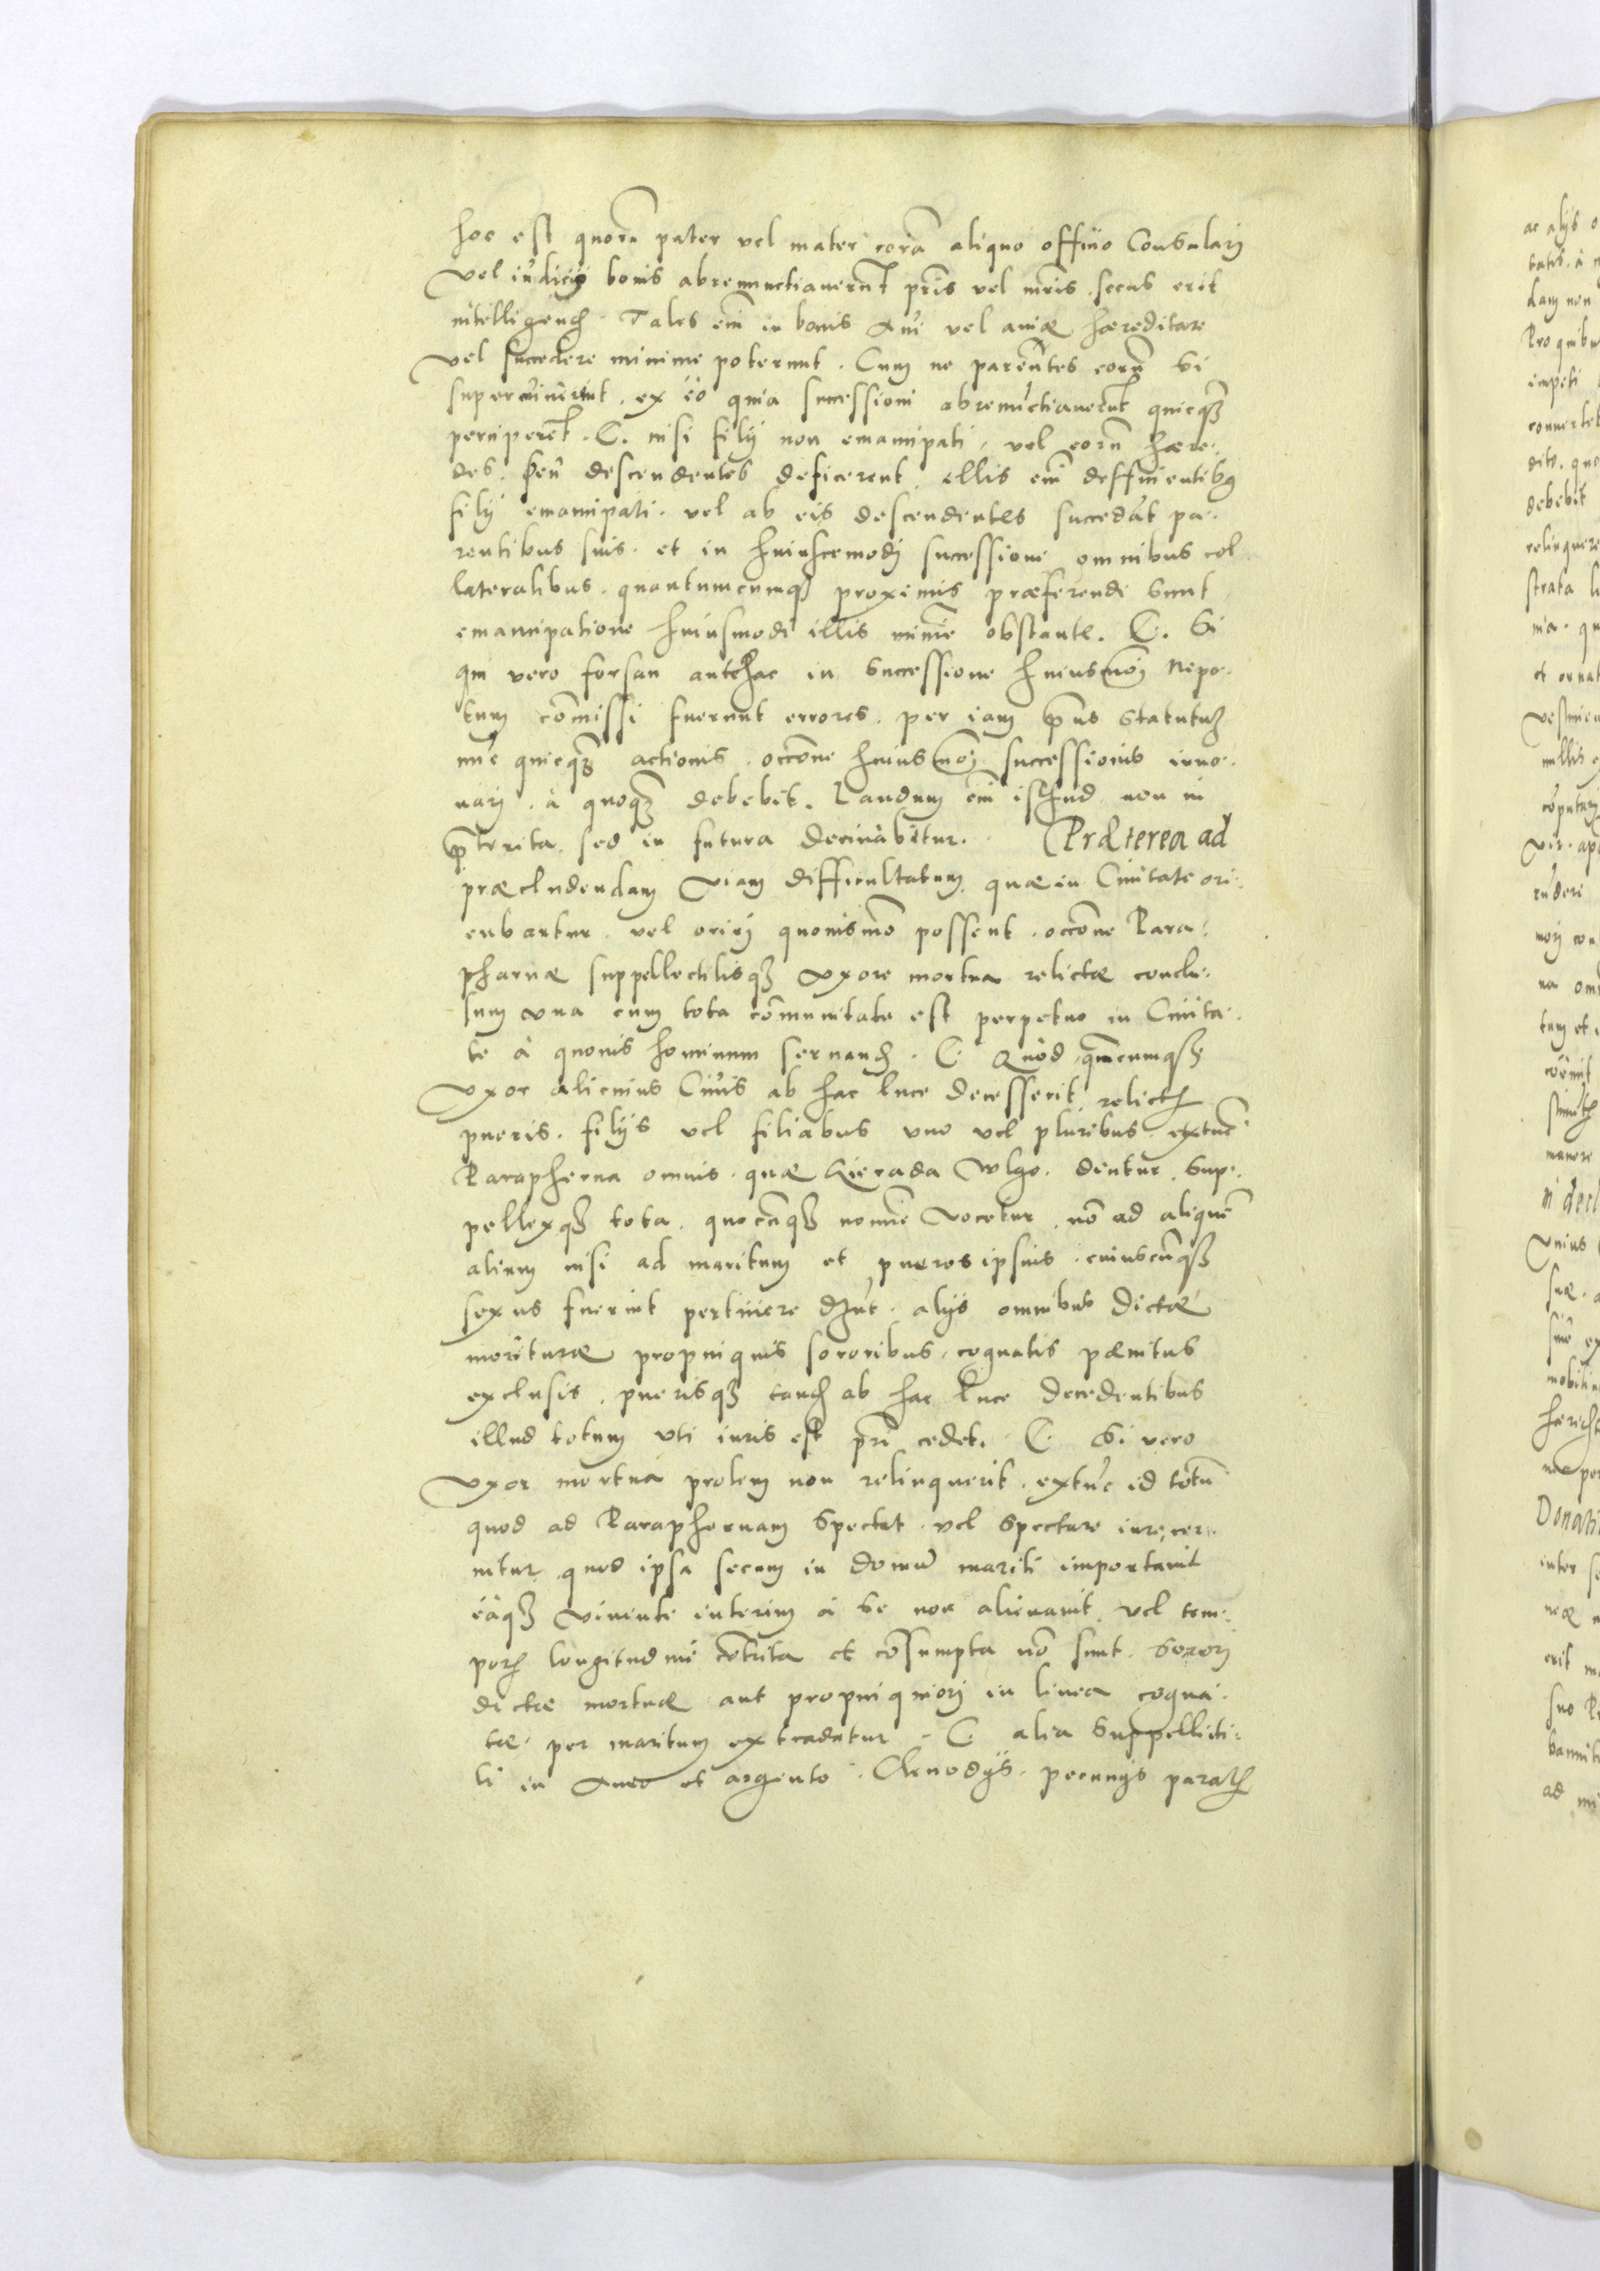 hoc est quorū pater vel mater corā aliquo officio Consulari
vel iudicio bonis abrenunctiaverūt pris vel mris . secus erit
intelligend. Tales em̄ in bonis Aui vel auiæ hæreditare
vel succedere minime poterunt . Cum ne parentes eorū si
superviuerēnt . ex eo quia successioni abrenūctiauerūt quicq̃
perciperēt . C. nisi filij non emancipati . vel eorū hære.
des . seu descendentes deficerent . illis em̄ deficientibꝰ
filij emancipati . vel ab eis descendentes succedāt pa.
rentibus suis . et in huiuscemodi successione omnibus col
lateralibus . quantumcumqꝫ proximis præferendi sunt
emancipatione huiusmodi illis minīe obstante . C. Si
qui vero forsan antehac in successione huiusmoi Nepo.
tum com̄issi fuerunt errores . per iam p̄ns Statutū
nūc quicqꝫ actionis . occōne huiusmoi successionis inno.
uari . à quoqꝫ debebit . Laudum em̄ istud non in
p̄terita . sed in futura deriuabitur . Præterea ad
præcludendam viam difficultatum . quæ in Ciuitate ori.
eubantur . vel oriri quouismō possent . occōne Para.
pharnæ suppellectilisqꝫ Vxore mortua relictæ conclu.
sum vna cum tota com̄unitate est perpetuo in Ciuita.
te à quouis hominum seruand . C. Quod quēcumqꝫ
vxor alicuius Ciuis ab hac luce decesserit relict
pueris . filijs vel filiabus vno vel pluribus . extūc
Parapherna omnis . quæ Gierada wlgo . dicitur . Sup.
pellexqꝫ tota . quocūqꝫ nomīe vocetur . nō ad aliquē
alium nisi ad maritum et pueros ipsius . cuiuscūqꝫ
sexus fuerint pertinere dz̄nt . alijs omnibus dictæ
morituræ propinquis sororibus . cognatis pænitus
exclusis . puerisqꝫ tand ab hac luce decedentibus
illud totum vti iuris est pr̄i cedet . C. Si vero
vxor mortua prolem non relinquerit . extūc id totū
quod ad Paraphernam spectat . vel spectare iure cer.
nitur quod ipsa secum in domū mariti importauit
eāqꝫ viuente interim à se non alienauit . vel tem.
poris longitudine cōtrita et cōsumpta nō sunt . Sorori
dictæ mortuæ aut propinquiori in linea cogna.
tæ . per maritum extradatur . C. alia Suppellecti.
li in Auro et argento . Clenodijs . pecunijs paratis